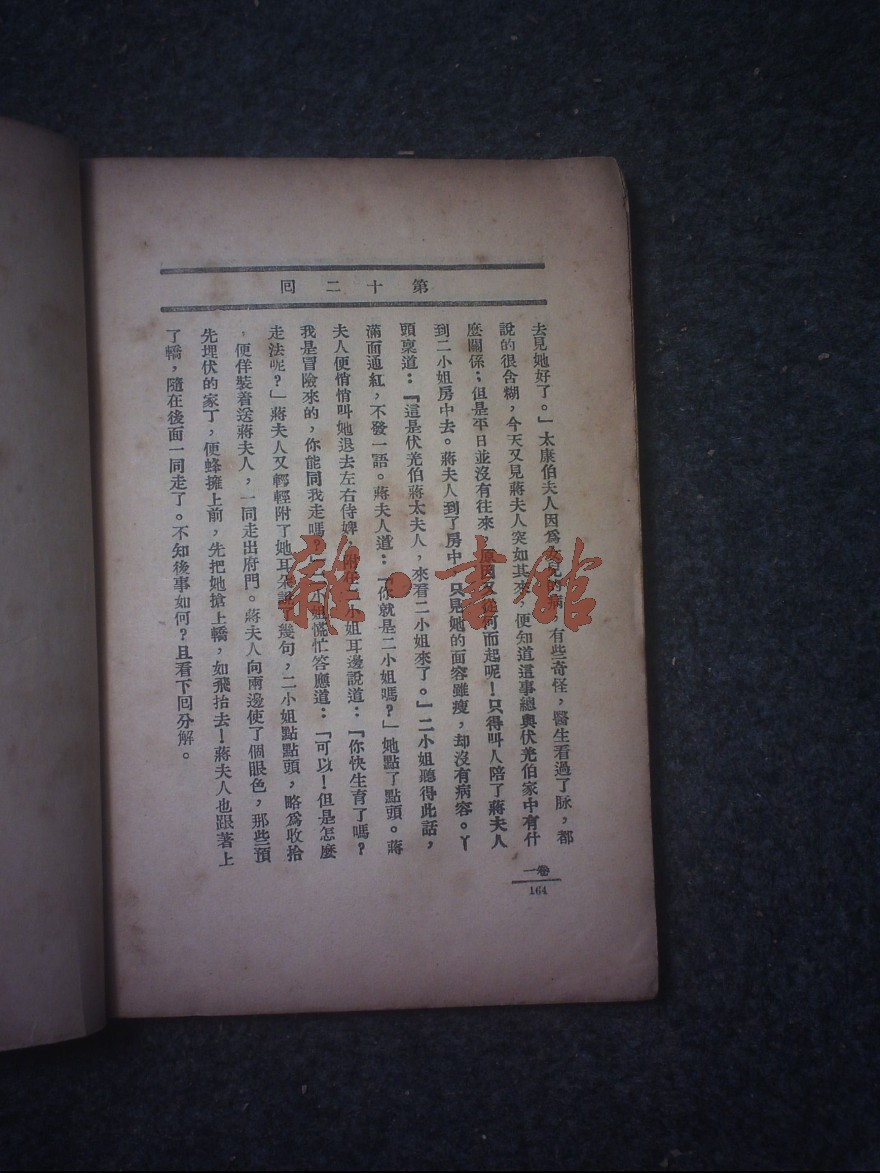 第十二回
去見她好了。」太康伯夫人因爲女兒的病，有些奇怪，醫生看過了脉，都
說的很含糊，今天又見蔣夫人突如其來，便知道這事總與伏羌伯家中有什
麽關係；但是平日並沒有往來，原因又從何而起呢！只得叫人陪了蔣夫人
到二小姐房中去。蔣夫人到了房中，只見她的面容雖瘦，却沒有病容。丫
頭稟道：『這是伏羌伯蔣太夫人，來看二小姐來了。』二小姐聽得此話，
滿面通紅，不發一語。蔣夫人道：「你就是二小姐嗎？」她點了點頭。蔣
夫人便悄悄叫她退去左右侍婢，附在二小姐耳邊說道：『你快生育了嗎？
我是冒險來的，你能同我走嗎？』二小姐慌忙答應道：「可以！但是怎麽
走法呢？」蔣夫人又輕輕附了她耳朵說了幾句，二小姐點點頭，略爲收拾
，便佯裝着送蔣夫人，一同走出府門。蔣夫人向兩邊使了個眼色，那些預
先埋伏的家丁，便蜂擁上前，先把她搶上轎，如飛抬去！蔣夫人也跟著上
了轎，隨在後面一同走了。不知後事如何？且看下回分解。
卷一
164
雜·書館